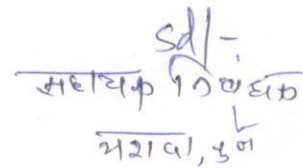 sd/-
सहायक निबंधक
यशदा, पुणे